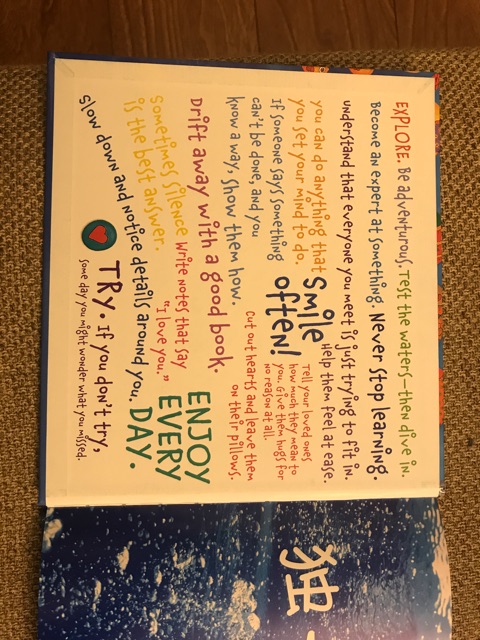 EXPLORE. Be adventurous. Test the waters—then dive in.
Become an expert at something. Never stop learning.
understand that everyone you meet is just trying to fit in.
Help them feel at ease.
you can do anything that
you set your mind to do.
If someone says something
can't be done, and you
know a way, show them how.
smile
often!
Tell your loved ones
how much they mean to
you. Give them hugs for
no reason at all.
Cut out hearts and leave them
on their pillows.
Drift away with a good book.
Sometimes silence
is the best answer.
write notes that say
"I love you."
ENJOY
EVERY
DAY.
slow down and notice details around you.
TRY. If you don't try,
some day you might wonder what you missed.
独